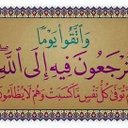 وَٱتَّقُوا۟ يَوْمًا
تُرْجَعُونَ فِيهِ إِلَى ٱللَّهِ
تُوَفَّىٰ كُلُّ نَفْسٍ مَّا كَسَبَتْ وَهُمْ لَا يُظْلَمُونَ